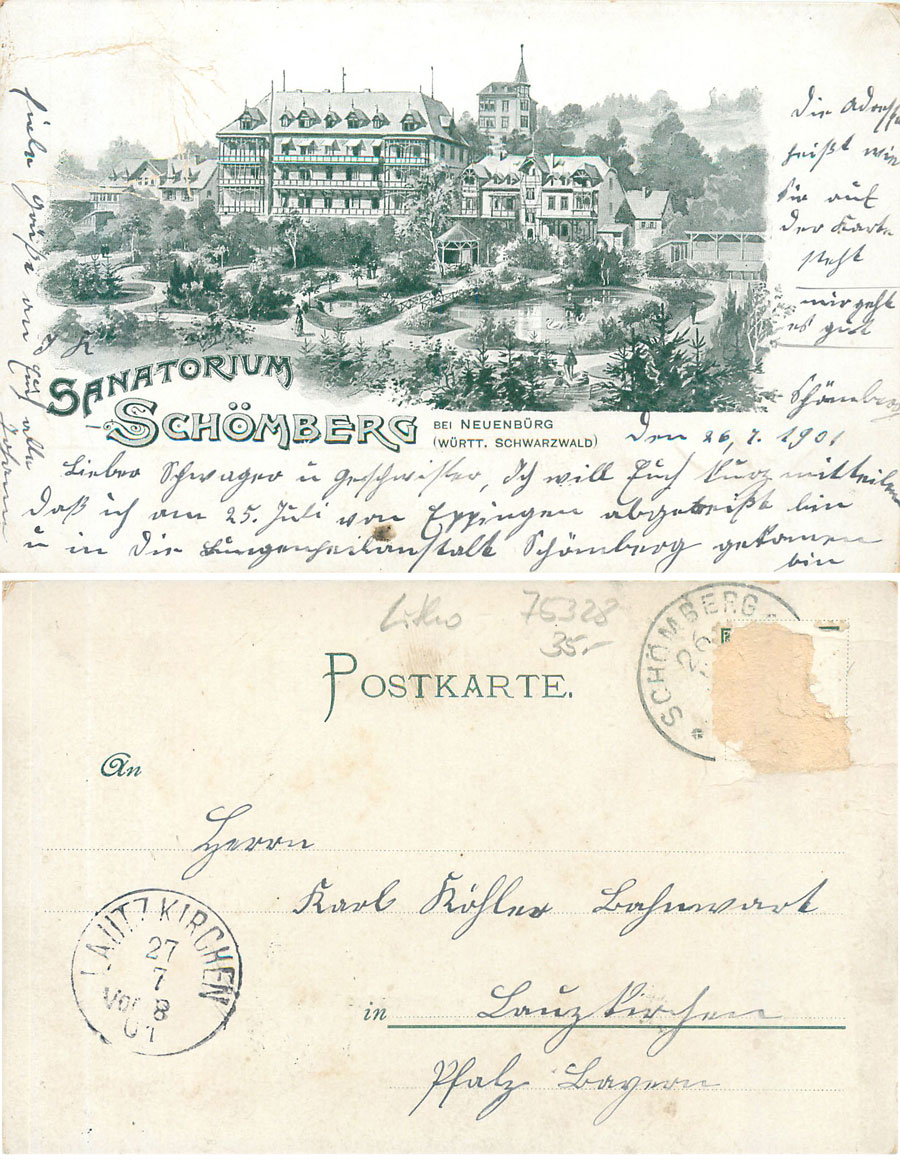 SANATORIUM
SCHÖMBERG
BEI NEUENBÜRG
(WÜRTT. SCHWARZWALD)
Schömberg
Den 26, 7. 1901
Lieber Schwager u Geschwister, Ich will Euch kurz mitteilen
daß ich am 25. Juli von Eppingen abgereißt bin
u in die Lungenheilanstalt Schömberg gekomen
bin
Die Adresse
heißt wie
sie auf
der Karte
steht
mir geht
es gut
viele Grüße an Euch alle
Johann
Litho 75328
35.-
SCHÖMBERG
26
POSTKARTE.
An
Herrn
Karl Köhler Bahnwart
in Lauzkirchen
Pfalz Bayern
LAUTZKIRCHEN
27
7
Vor 8
01